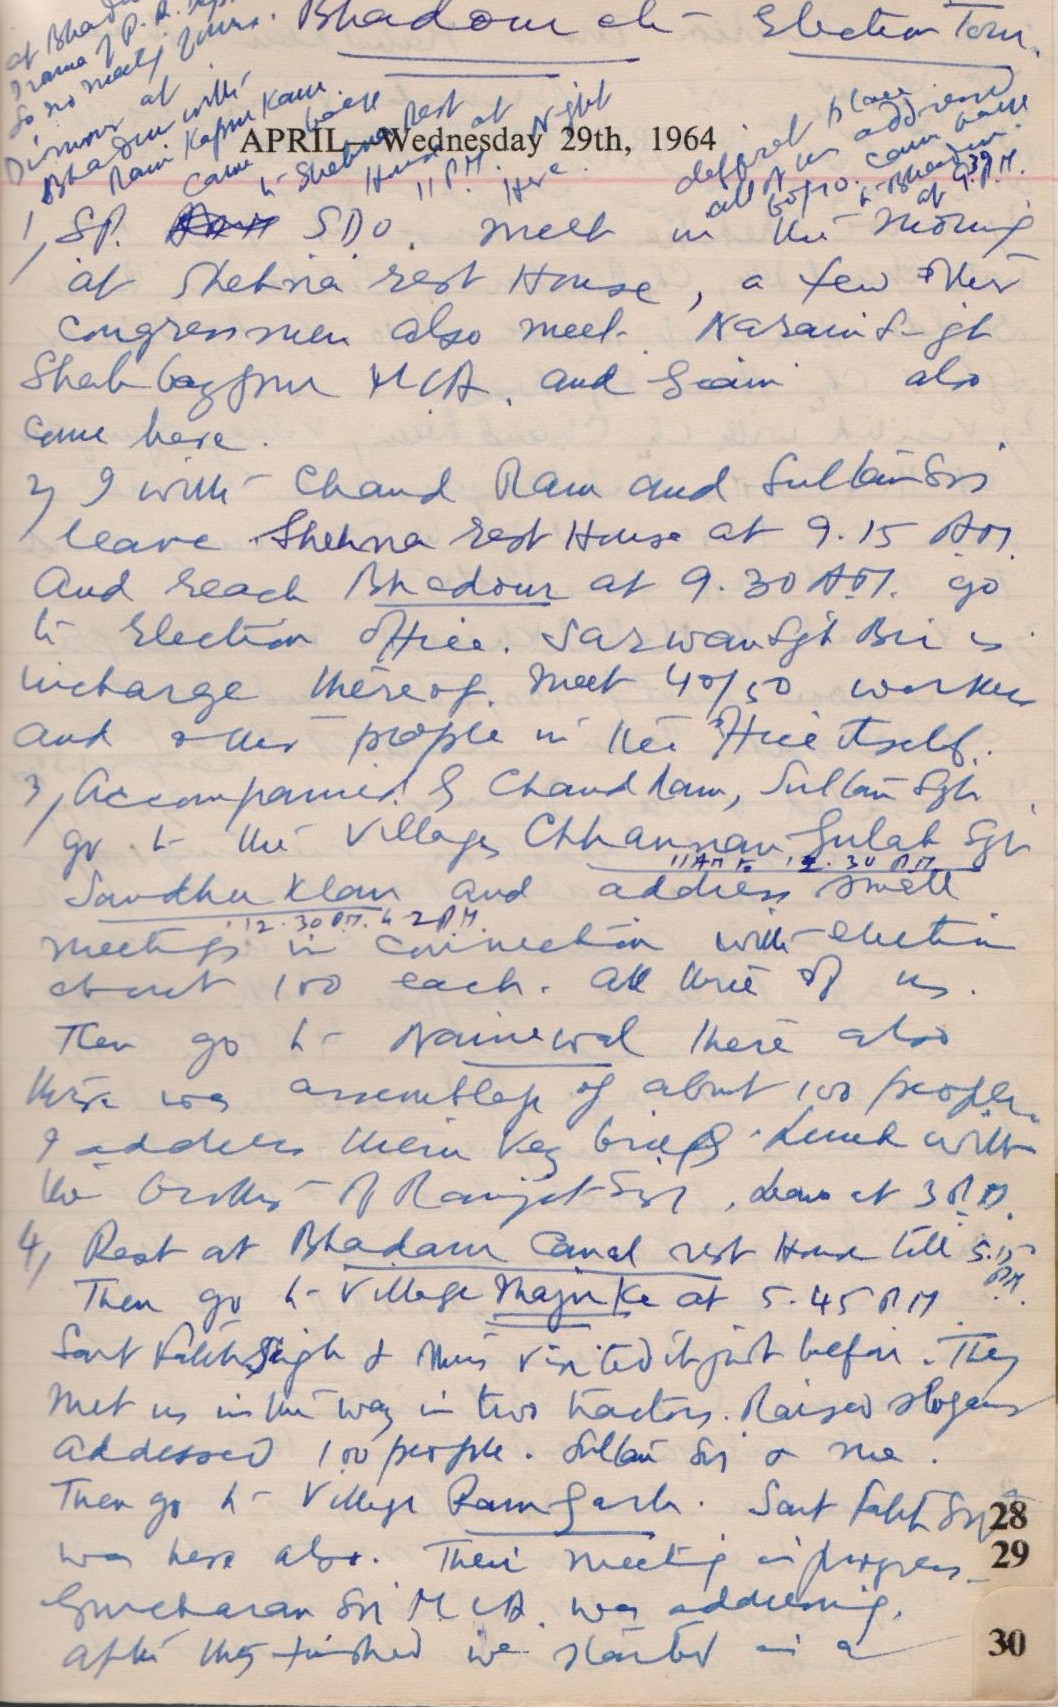 Bhadour ch- Election Tour.
APRIL—Wednesday 29th, 1964
different place
all of us addressed
50/70. came back
to Bhadour
at 9.30 P.M.
of Bhadour
Drama of P.R.
So no meeting
Dinner at
Bhadour with
Ram Kapur Kaur.
came back
to Shehna Rest
House at Night
11 P.M. Here.
1, S.P. SDO. meet in the morning
at Shehna rest House, a few other
congressmen also meet. Narain Singh
Shahbazpuri MLA. and Giani also
came here.
2, I with Chand Ram and Sultan Sgh
leave Shehna rest House at 9.15 A.M.
and reach Bhadour at 9.30 A.M. go
to Election Office. Sarwan Sgh Bir is
incharge thereof. meet 40/50 workers
and other people in the Office itself.
3, Accompanied by Chand Ram, Sultan Sgh
go to the Villages Chhannan Gulab Sgh
11 AM to 12.30 P.M.
Sandhu Klan and address small
12.30 P.M. to 2 P.M.
meetings in connection with election
about 100 each. all three of us.
Then go to Nainewal there also
there was assemblage of about 100 people.
I address them very briefly. Lunch with
the brother of Ranjit Sgh, leave at 3 P.M.
4, Rest at Bhadaur Canal rest House till 5.15
P.M.
Then go to Village Majuke at 5.45 P.M
Sant Fateh Singh & visited it just before. They
met us in the way in two tractors. Raised slogans
addessed 100 people. Sultan Sgh & me.
Then go to Village Ramgarh. Sant Fateh Sgh
was here also. Their meeting in progress.
Gurcharan Sgh MLA. was addressing.
after they finished we started in a
28
29
30